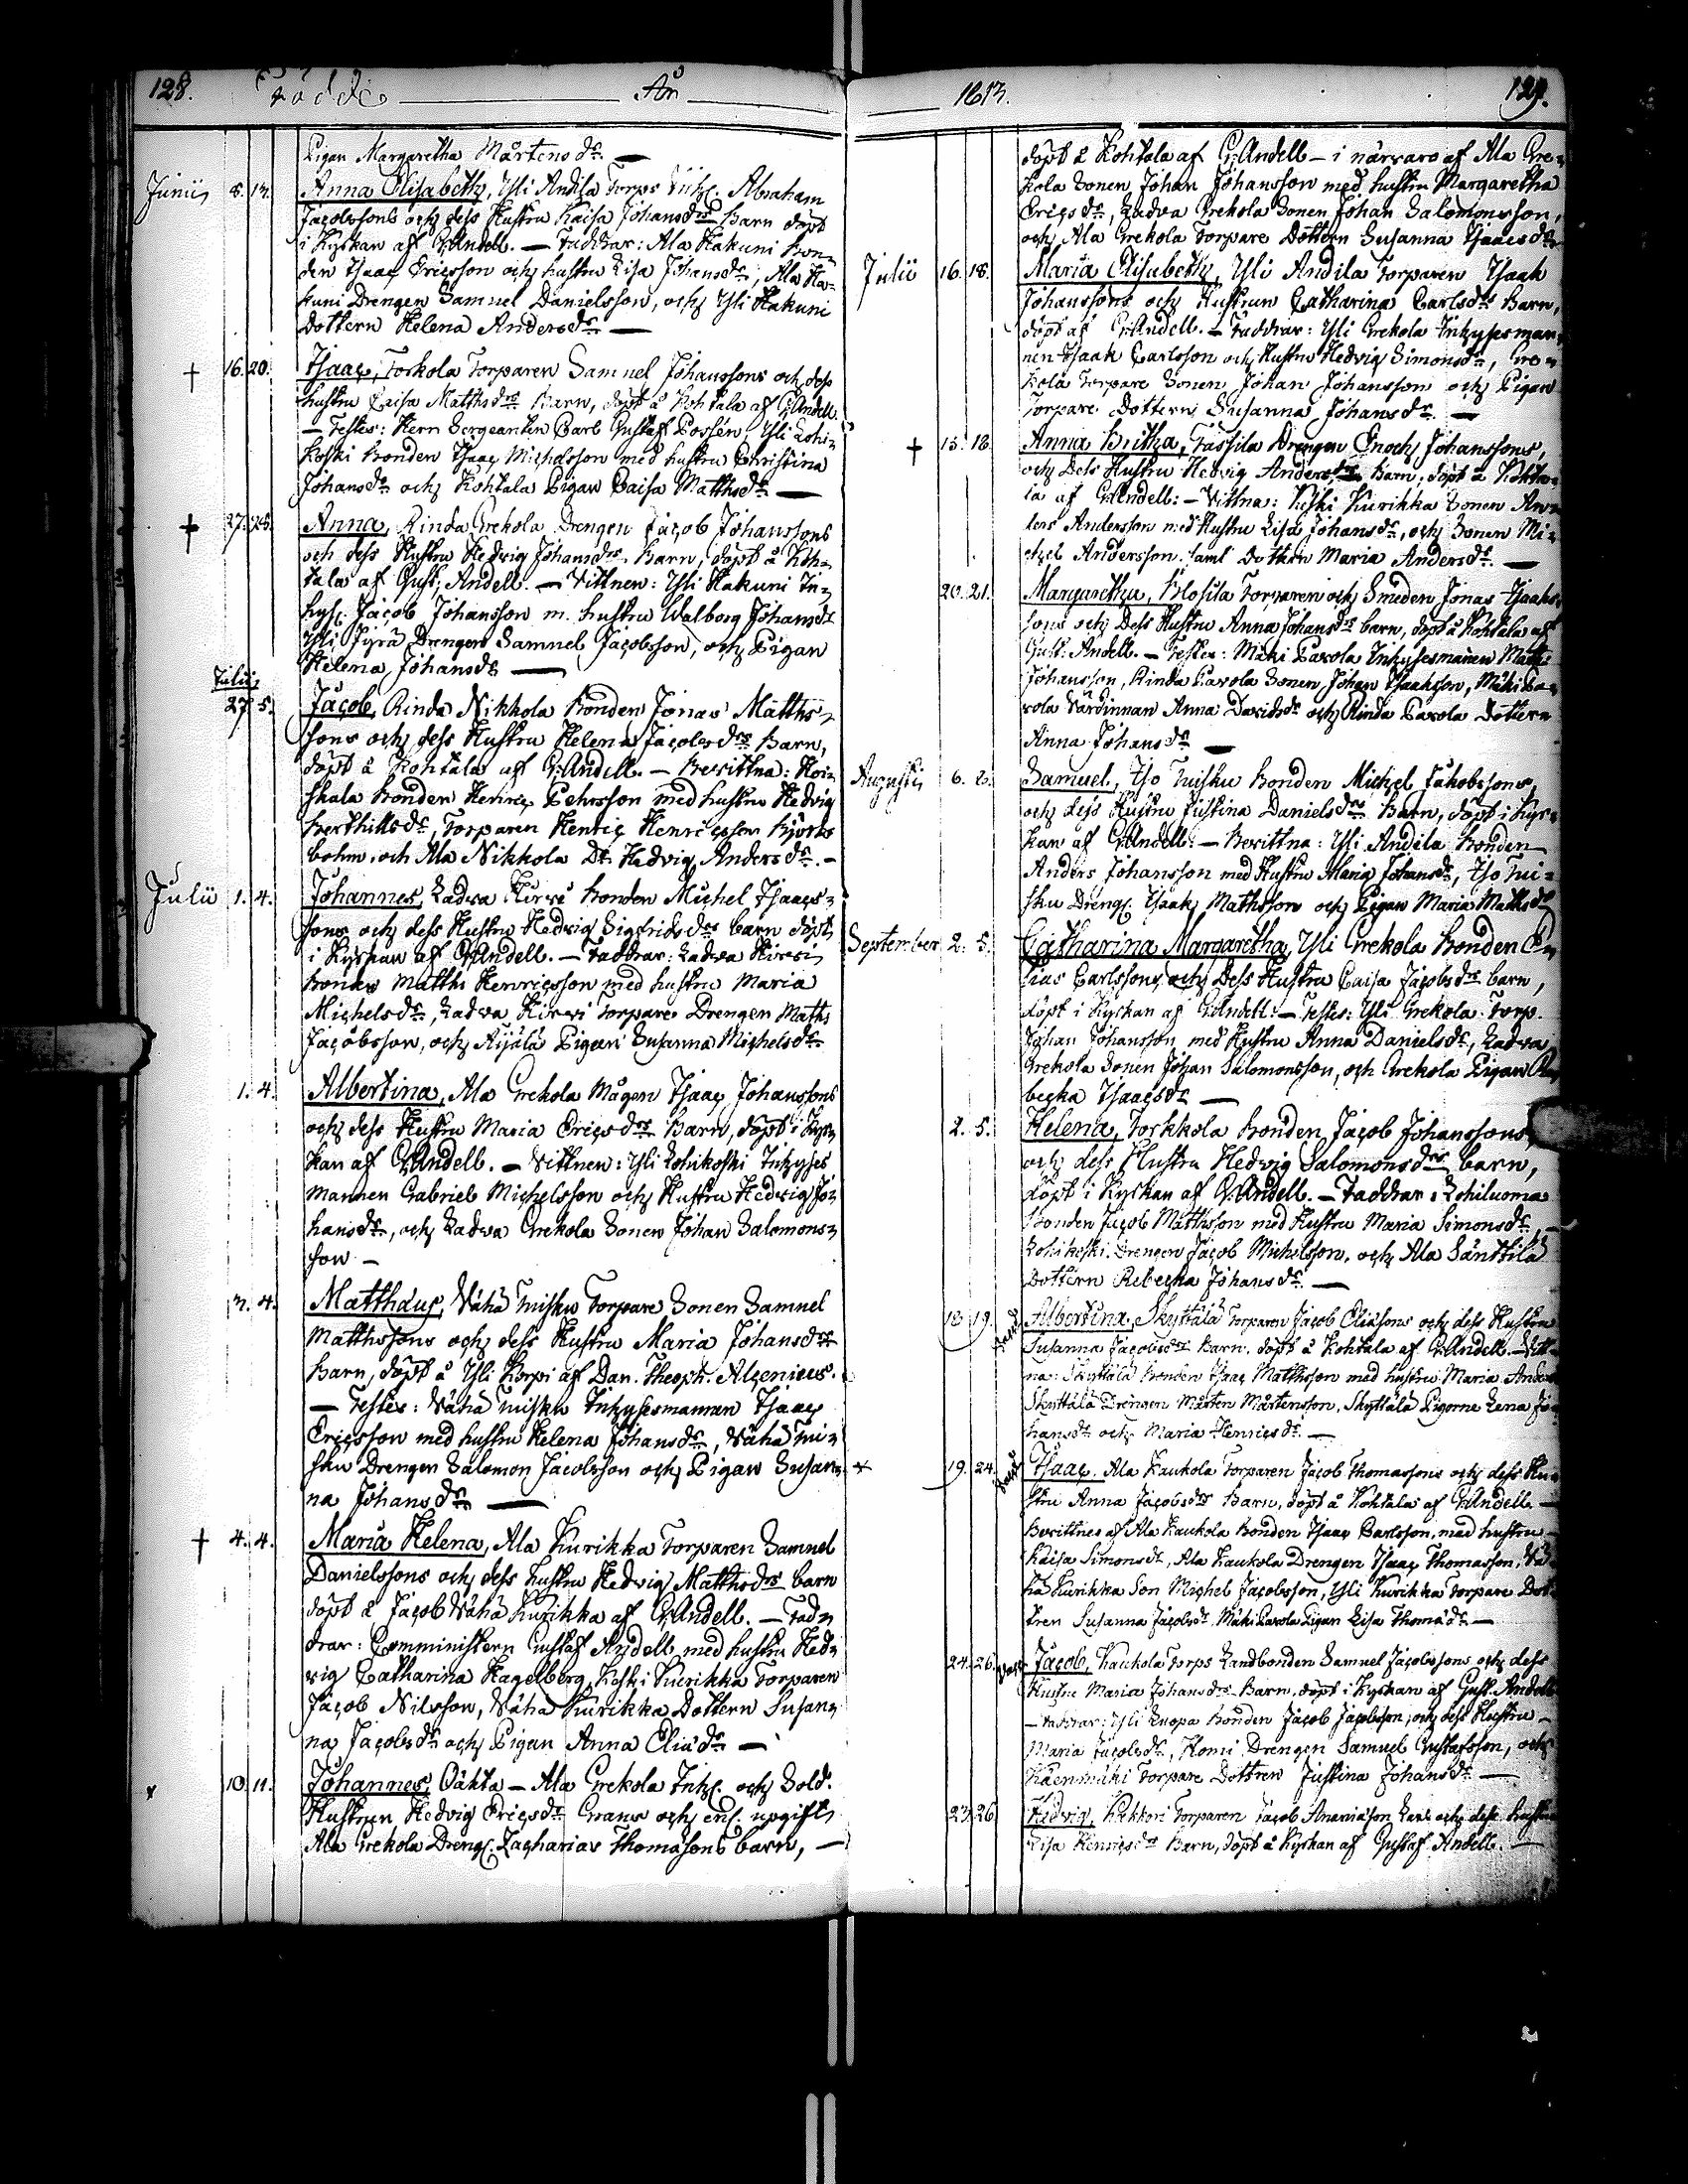 128. Födde År
Pigan Margaretha Mårtens dr. —
Junii 8. 13. Anna Elisabeth, Yli Andila Torps Inhs. Abraham
Jacobssons och dess Hustru Kaisa Johansdrs Barn döpt
i Kyrkan af G: Andell. — Faddrar: Ala Hakuni Bon-
den Isaac Ericsson och hustru Lisa Johansdr, Ala Ha-
kuni Drengen Samuel Danielsson, och Yli Hakuni
Dottern Helena Andersdr. —
† 16. 20. Isaac, Torkola Torparen Samuel Johanssons och dess
hustru Caisa Matthsdrs Barn, döpt å Kohtala af G: Andell.
— Testes: Herr Sergeanten Carl Gustaf Possén, Yli Lohi-
koski Bonden Isaac Michelsson med hustru Christina
Johansdr. och Kohtala Pigan Caisa Matthsdr. —
† 27. 28. Anna, Rinda Grekola Drengen Jacob Johanssons
och dess Hustru Hedvig Johansdrs Barn, döpt å Koh-
tala af Gust: Andell. — Vittnen: Yli Hakuni In-
hys: Jacob Johansson m. hustru Walborg Johansdr
Yli Jyrä Drengen Samuel Jacobsson, och Pigan
Helena Johansdr. —
Julii
27. 5. Jacob, Rinda Nikkola Bonden Jonas Matths-
sons och dess Hustru Helena Jacobsdrs Barn,
döpt å Kohtala af G: Andell. — Bevittna: Koi-
skala Bonden Henric Pehrsson med hustru Hedvig
Berthillsdr, Torparen Henric Henricsson Björk-
bohm, och Ala Nikkola Dr. Hedvig Andersdr. —
Julii 1. 4. Johannes, Ladva Hirvi Bonden Michel Isaacs-
sons och dess Hustru Hedvig Sigfridsdrs barn döpt
i Kyrkan af G: Andell. — Faddrar: Ladva Hirvi
Bonden Matths Henricsson med hustru Maria
Michelsdr, Ladva Hirvi Torpare Drengen Matths
Jacobsson, och Äijälä Pigan Susanna Michelsdr
1. 4. Albertina, Ala Grekola Mågen Isaac Johanssons
och dess Hustru Maria Ericsdrs Barn, döpt i Kyr-
kan af G: Andell. — Vittnen: Yli Lohikoski Inhyses
mannen Gabriel Michelsson och Hustru Hedvig Jo-
hansdr, och Ladva Grekola Sonen Johan Salomons-
son —
3. 4. Matthäus, Vähä Tuisku Torpare Sonen Samuel
Matthssons och dess Hustru Maria Johansdrs
Barn, döpt å Yli Korpi af Dan. Theoph. Alcenius.
— Testes: Vähä Tuisku Inhysesmannen Isaac
Ericsson med hustru Helena Johansdr, Vähä Tui-
sku Drengen Salomon Jacobsson och Pigan Susan-
na Johansdr. —
† 4. 4. Maria Helena, Ala Kurikka Torparen Samuel
Danielssons och dess hustru Hedvig Matthsdrs barn
döpt å Jacob Vähä Kurikka af G: Andell. — Fad-
drar: Comministern Gustaf Andell med hustru Hed-
vig Catharina Hagelberg, Koski Kurikka Torparen
Jacob Nilsson, Vähä Kurikka Dottern Susan-
na Jacobsdr och Pigan Anna Eliædr. —
10. 11. Johannes, Oäkta — Ala Grekola Inhs. och Sold.
Hustrun Hedvig Ericsdr Grans och enl. upgift
Ala Grekola Dreng: Zacharias Thomassons barn, —
1813. 129.
döpt å Kohtala af G: Andell — i närvaro af Ala Gre-
kola Sonen Johan Johansson med hustru Margaretha
Ericsdr, Ladva Grekola Sonen Johan Salomonsson,
och Ala Grekola Torpare Dottern Susanna Isaacsdr
Julii 16. 18. Maria Elisabeth, Yli Andila Torparen Isaak
Johanssons och Hustrun Catharina Carlsdrs Barn,
döpt af G: Andell. — Faddrar: Yli Grekola Inhysesman-
nen Isaak Carlsson och Hustru Hedvig Simonsdr, Gre-
kola Torpare Sonen Johan Johansson och Pigan
Torpare Dottern Susanna Johansdr. —
† 15. 18. Anna Britha, Tassila Drengen Enoch Johanssons,
och Dess Hustru Hedvig Andersdrs Barn, döpt å Kohta-
la af G: Andell: — Vittna: Koski Kurikka Sonen An-
ders Andersson med Hustru Lisa Johansdr, och Sonen Mi-
chel Andersson, samt Dottern Maria Andersdr. —
20. 21. Margaretha, Klosita Torparen och Smeden Jonas Isaaks-
sons och Dess Hustru Anna Johansdrs barn, döpt å Kohtala af
Gust: Andell. — Testes: Mäki Pavola Inhysesmannen Matts
Johansson, Rinda Pavola Sonen Johan Isaaksson, Mäki Pa-
vola Värdinnan Anna Davidsdr och Rinda Pavola Dottern
Anna Johansdr —
Augusti 6. 6. Samuel, Iso Tuisku Bonden Michel Jakobssons,
och dess Hustru Justina Danielsdrs Barn, döpt i Kyr-
kan af G: Andell: — Bevittna: Yli Andila Bonden
Anders Johansson med Hustru Maria Johansdr, Iso Tui-
sku Dreng: Isaak Mathsson och Pigan Maria Mattsdr
September 2. 5. Catharina Margaretha, Yli Grekola Bonden E-
lias Carlssons och Dess Hustru Caisa Jacobsdrs barn,
döpt i Kyrkan af G: Andell: — Testes: Yli Grekola Torp.
Johan Johansson med Hustru Anna Danielsdr, Ladva
Grekola Sonen Johan Salomonsson, och Grekola Pigan Re-
becka Isaacsdr —
2. 5. Helena, Torkkola Bonden Jacob Johanssons
och dess Hustru Hedvig Salomonsdrs barn,
döpt i Kyrkan af G: Andell. — Faddrar: Lohiluoma
Bonden Jacob Matthsson med Hustru Maria Simonsdr,
Lohikoski Drengen Jacob Michelsson, och Ala Säntilä
Dottern Rebecka Johansdr. —
18 19. Albertina, Skyttälä Torparen Jacob Eliæsons och dess Hustru
Susanna Jacobsdrs Barn, döpt å Kohtala af G: Andell. — Vitt-
na: Skyttälä Bonden Isaac Matthsson med hustru Maria Anders
Skyttälä Drengen Mårten Mårtensson, Skyttälä Pigorne Lena Jo-
hansdr och Maria Henricsdr. —
19. 24. Isaac, Ala Kaukola Torparen Jacob Thomassons och dess Hu-
stru Anna Jacobsdrs Barn, döpt å Kohtala af G: Andell. —
Bevittnes af Ala Kaukola Bonden Isaac Carlsson, med hustru
Kaisa Simonsdr, Ala Kaukola Drengen Isaac Thomasson, Vä-
hä Kurikka Son Michel Jacobsson, Yli Kurikka Torpare Dot-
tren Susanna Jacobsdr. Mäki Pavola Pigan Lisa Thomædr —
24. 26. Jacob, Kaukola Torps Landbonden Samuel Jacobssons och dess
Hustru Maria Johansdrs Barn, döpt i Kyrkan af Gust. Andell
— Faddrar: Yli Luopa Bonden Jacob Jacobsson, och dess Hustru —
Maria Jacobsdr, Homi Drengen Samuel Gustafsson, och
Käenmäki Torpare Dottren Justina Johansdr —
23. 26 Hedvig, Hakkori Torparen Jacob Ananiæson och dess hustru
Lisa Henricsdrs Barn, döpt å Kyrkan af Gustaf Andell. —